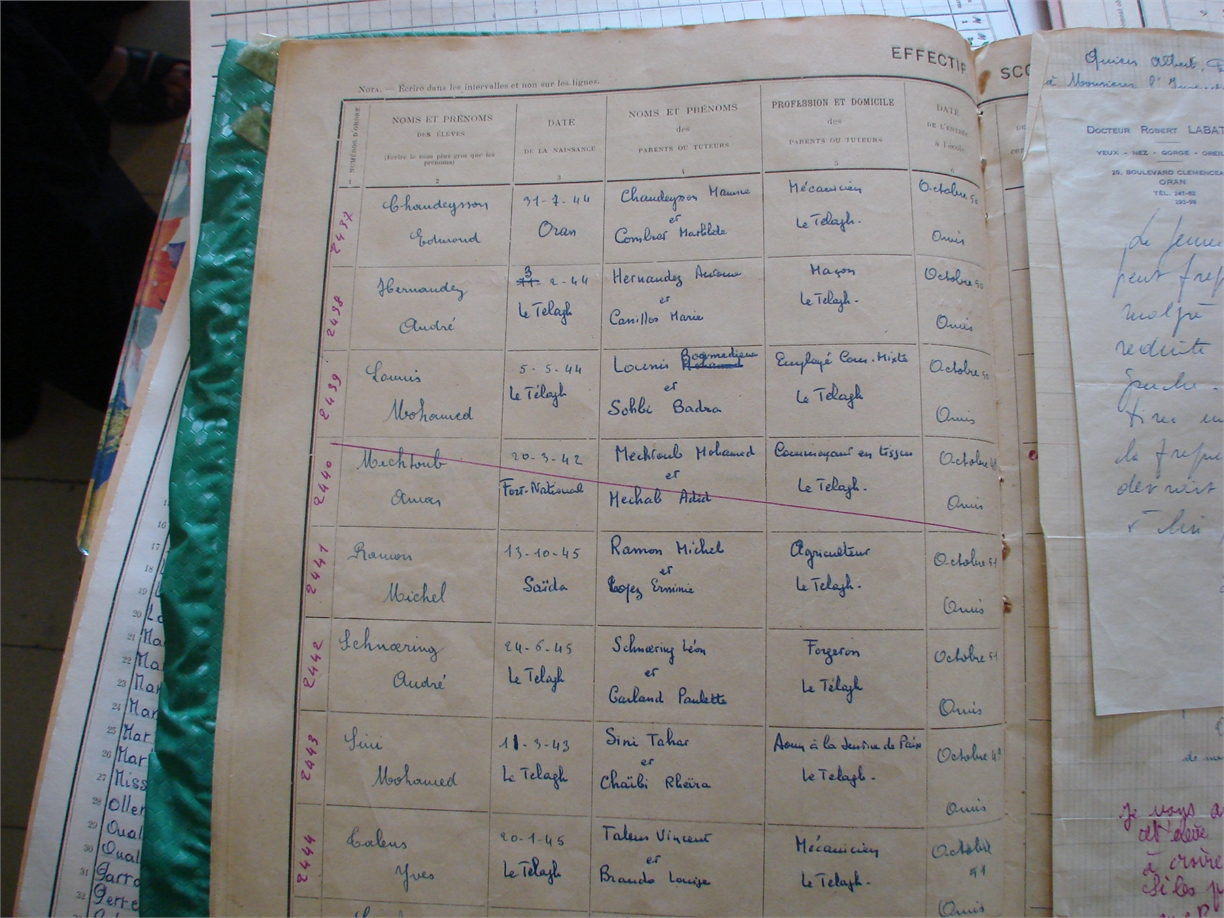 EFFECTIF
SCO
NOTA. — Écrire dans les intervalles et non sur les lignes.
NUMÉROS D'ORDRE
NOMS ET PRÉNOMS
DES ÉLÈVES
(Écrire le nom plus gros que les prénoms)
2
DATE
DE LA NAISSANCE
3
NOMS ET PRÉNOMS
des
PARENTS OU TUTEURS
4
PROFESSION ET DOMICILE
des
PARENTS OU TUTEURS
5
DATE
DE L'ENTRÉE
à l'école
6
2437
Chaudeysson
Edmond
31-7-44
Oran
Chaudeysson Maurice
et
Combres Mathilde
Mécanicien
Le Télagh.
Octobre 50
Omis
2438
Hernandez
André
3
2-44
Le Télagh
Hernandez
et
Casillos Marie
Maçon
Le Télagh.
Octobre 50
Omis
2439
Lounis
Mohamed
5-5-44
Le Télagh
Lounis Boumediene
et
Sohbi Badra
Employé Com. Mixte
Le Télagh
Octobre 50
Omis
2440
Mechtoub
Amar
20-3-42
Fort-National
Mechtoub Mohamed
et
Mechab Adid
Commerçant en tissus
Le Télagh.
Octobre
Omis
2441
Ramon
Michel
13-10-45
Saïda
Ramon Michel
et
Lopez Erminie
Agriculteur
Le Telagh.
Octobre 51
Omis
2442
Schnœring
André
24-6-45
Le Telagh
Schnœring Léon
et
Garland Paulette
Forgeron
Le Télagh
Octobre 51
Omis
2443
Sini
Mohamed
11-3-43
Le Telagh
Sini Tahar
et
Chaïbi Kheïra
Aoun à la Justice de Paix
Le Télagh.
Octobre 49
Omis
2444
Talens
Yves
20-1-45
Le Télagh
Talens Vincent
et
Brando Louise
Mécanicien
Le Télagh.
Octobre
51
Omis
DOCTEUR ROBERT LABAT
YEUX - NEZ - GORGE - OREIL
26, BOULEVARD CLEMENCEA
ORAN
TÉL. 241-62
peut
malgré
réduite
gauche.
15
16
17
18
19
20
21
22
23
24
25
26
27
28
29
30
31
32
Mar
Mar
Mar
Miss
Oller
Oual
Oual
Parra
Perre
je vous